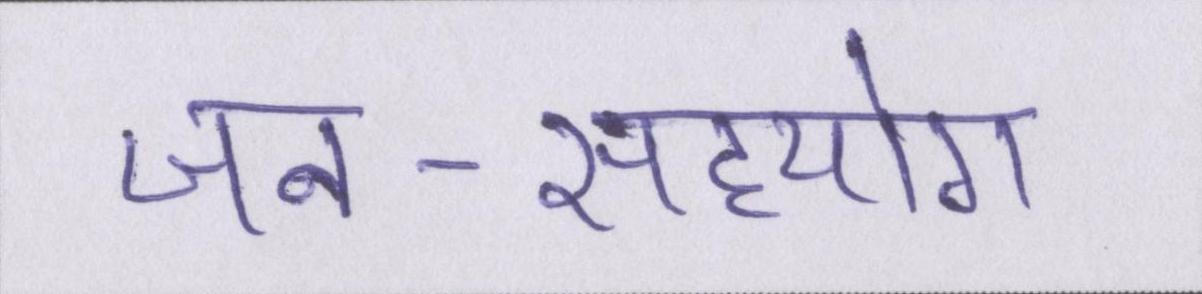 जन-सहयोग